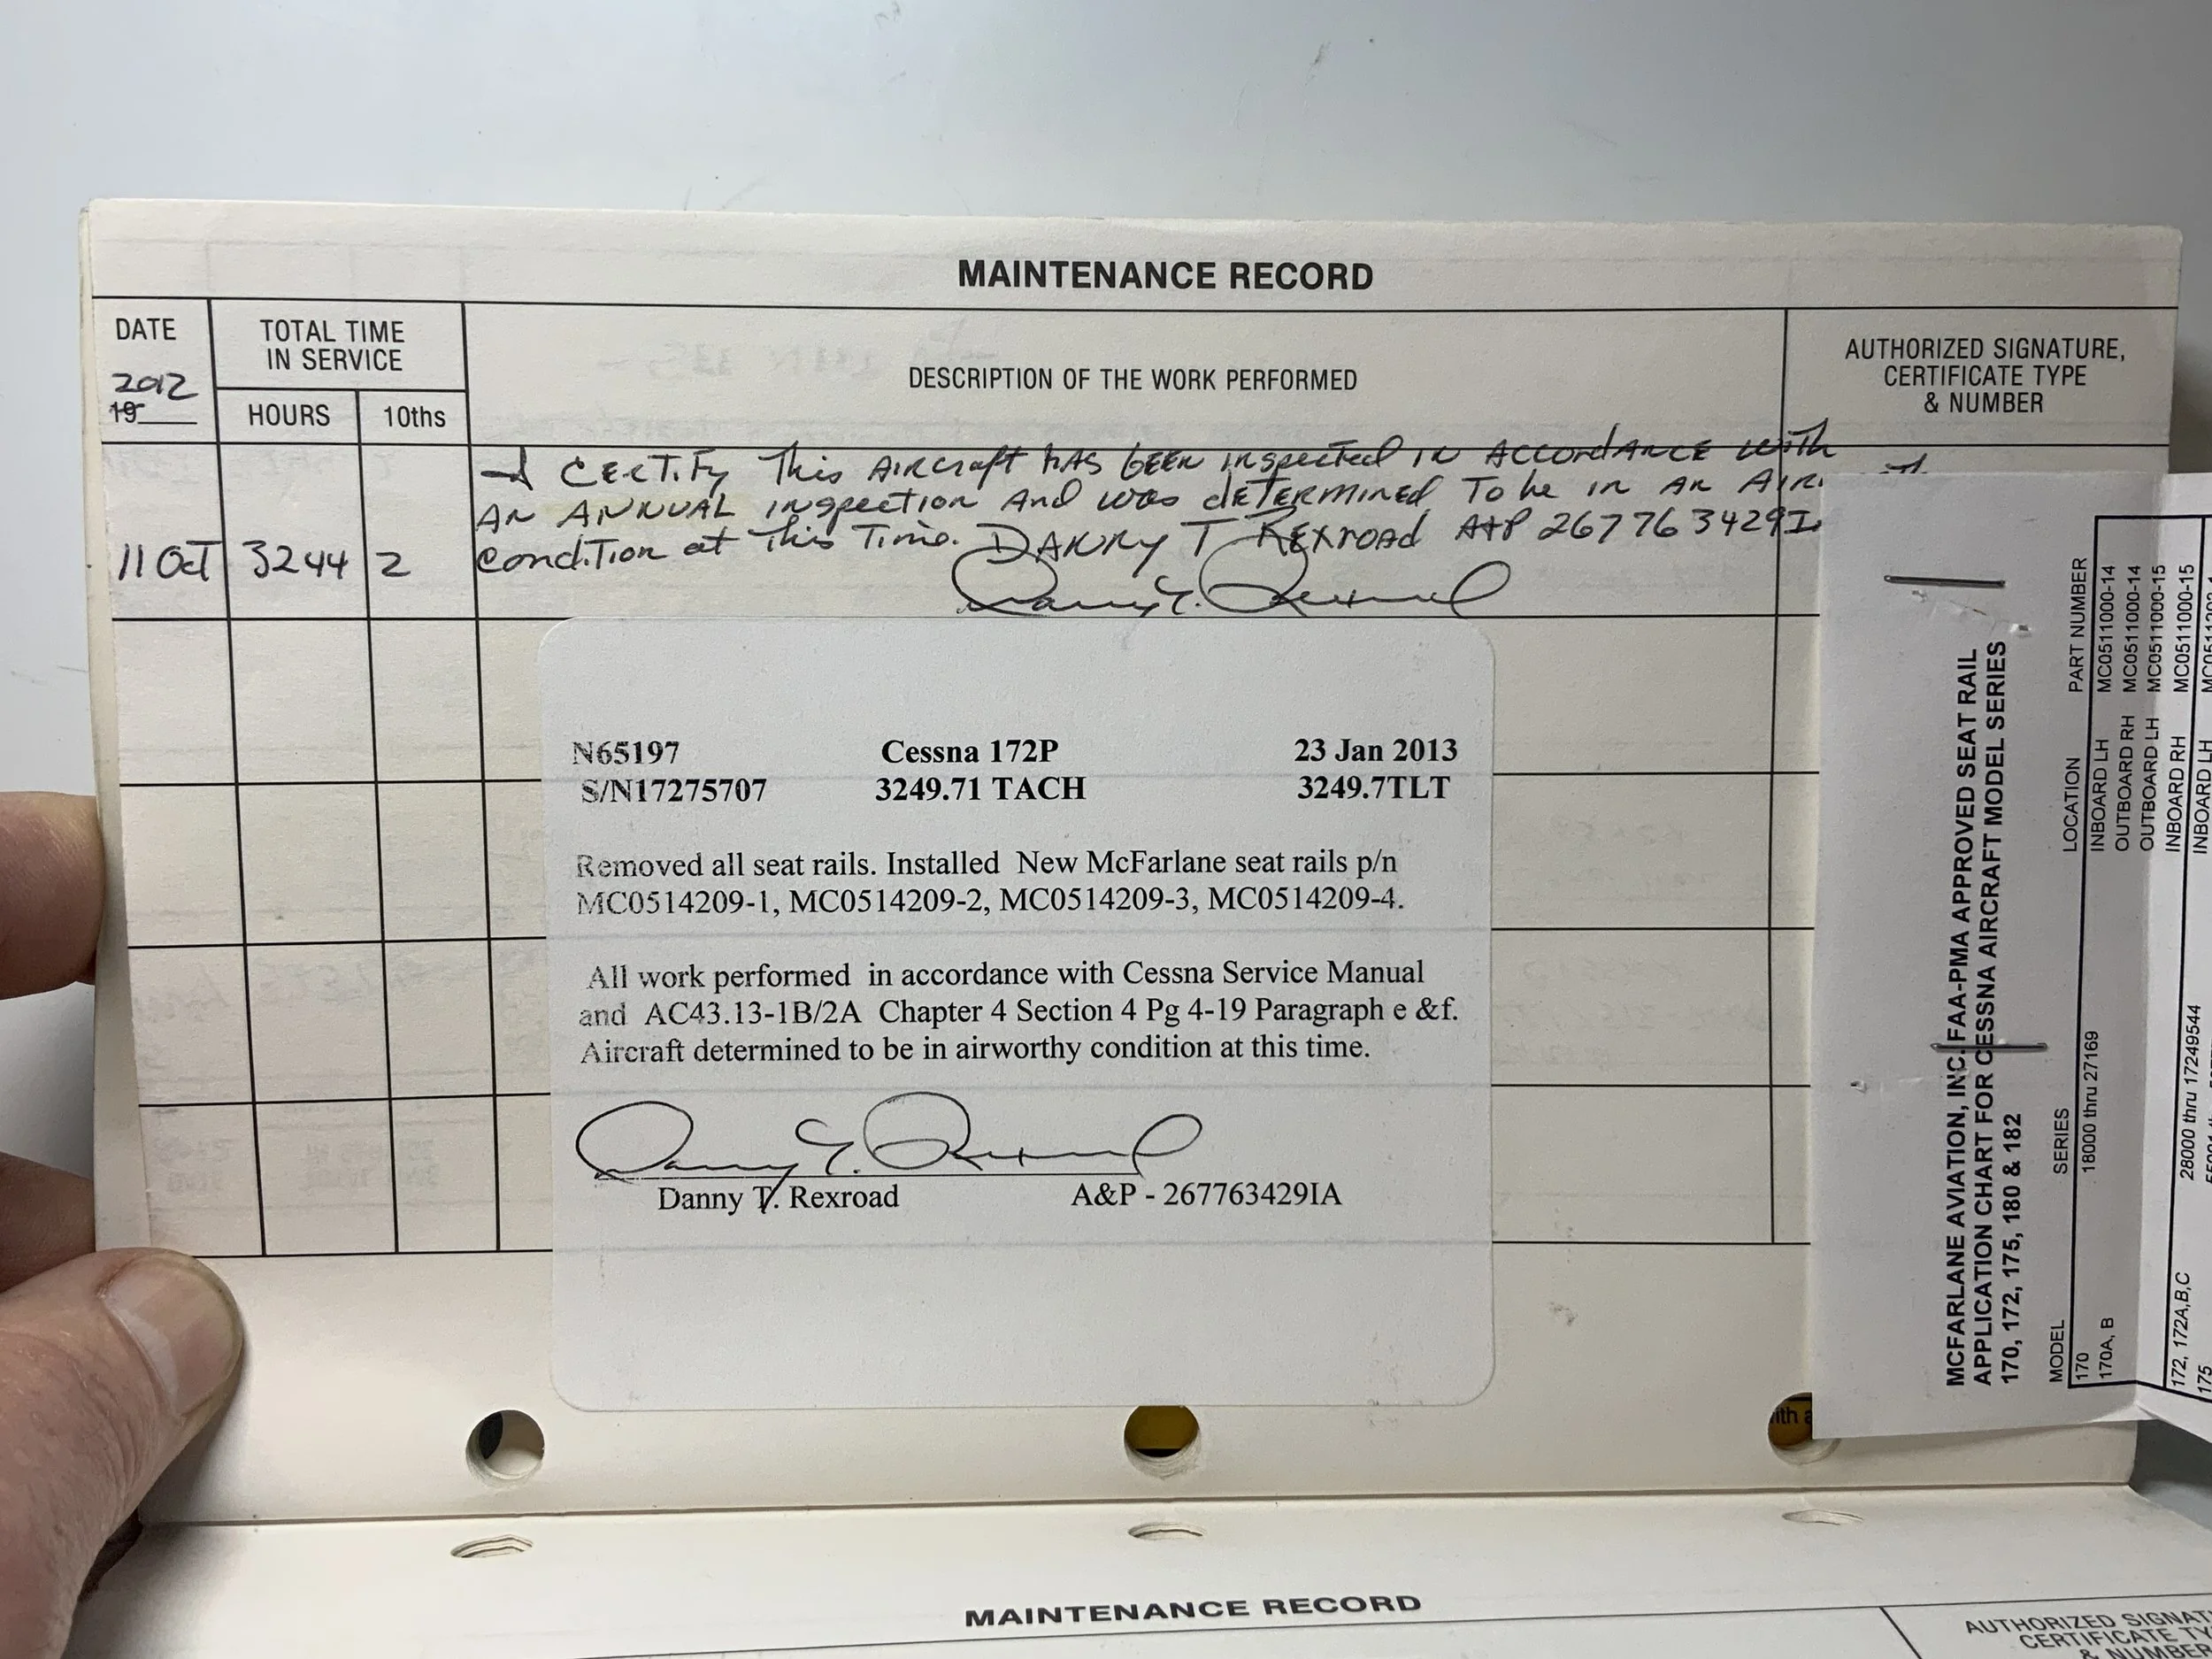 MAINTENANCE RECORD
DATE
2012
19
TOTAL TIME
IN SERVICE
HOURS
10ths
DESCRIPTION OF THE WORK PERFORMED
AUTHORIZED SIGNATURE,
CERTIFICATE TYPE
& NUMBER
11 Oct 3244 2
I CERTIFY This AIRCRAFT HAS BEEN inspected IN ACCORDANCE WITH
AN ANNUAL inspection And was DETERMINED To be in AN
Condition at This Time. DANNY T REXROAD A&P 267763429
Danny T. Rexroad
N65197 Cessna 172P 23 Jan 2013
S/N17275707 3249.71 TACH 3249.7TLT
Removed all seat rails. Installed New McFarlane seat rails p/n
MC0514209-1, MC0514209-2, MC0514209-3, MC0514209-4.
All work performed in accordance with Cessna Service Manual
and AC43.13-1B/2A Chapter 4 Section 4 Pg 4-19 Paragraph e &f.
Aircraft determined to be in airworthy condition at this time.
Danny T. Rexroad
Danny T. Rexroad A&P - 267763429IA
MCFARLANE AVIATION, INC. FAA-PMA APPROVED SEAT RAIL
APPLICATION CHART FOR CESSNA AIRCRAFT MODEL SERIES
170, 172, 175, 180 & 182
MODEL SERIES LOCATION PART NUMBER
170 18000 thru 27169 INBOARD LH MC0511000-14
170A, B OUTBOARD RH MC0511000-14
OUTBOARD LH MC0511000-15
172, 172A,B,C 28000 thru 17249544 INBOARD RH MC0511000-15
175 INBOARD LH
MAINTENANCE RECORD
AUTHORIZED
CERTIFICATE